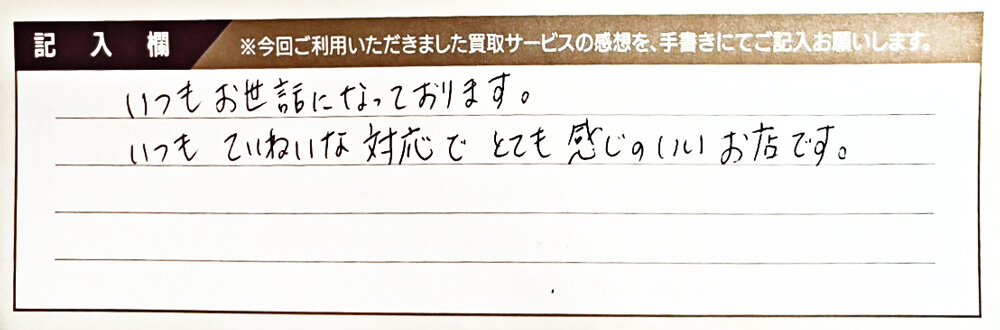 記入欄 ※今回ご利用いただきました買取サービスの感想を、手書きにてご記入お願いします。
いつもお世話になっております。
いつも ていねいな 対応で とても 感じのいい お店です。